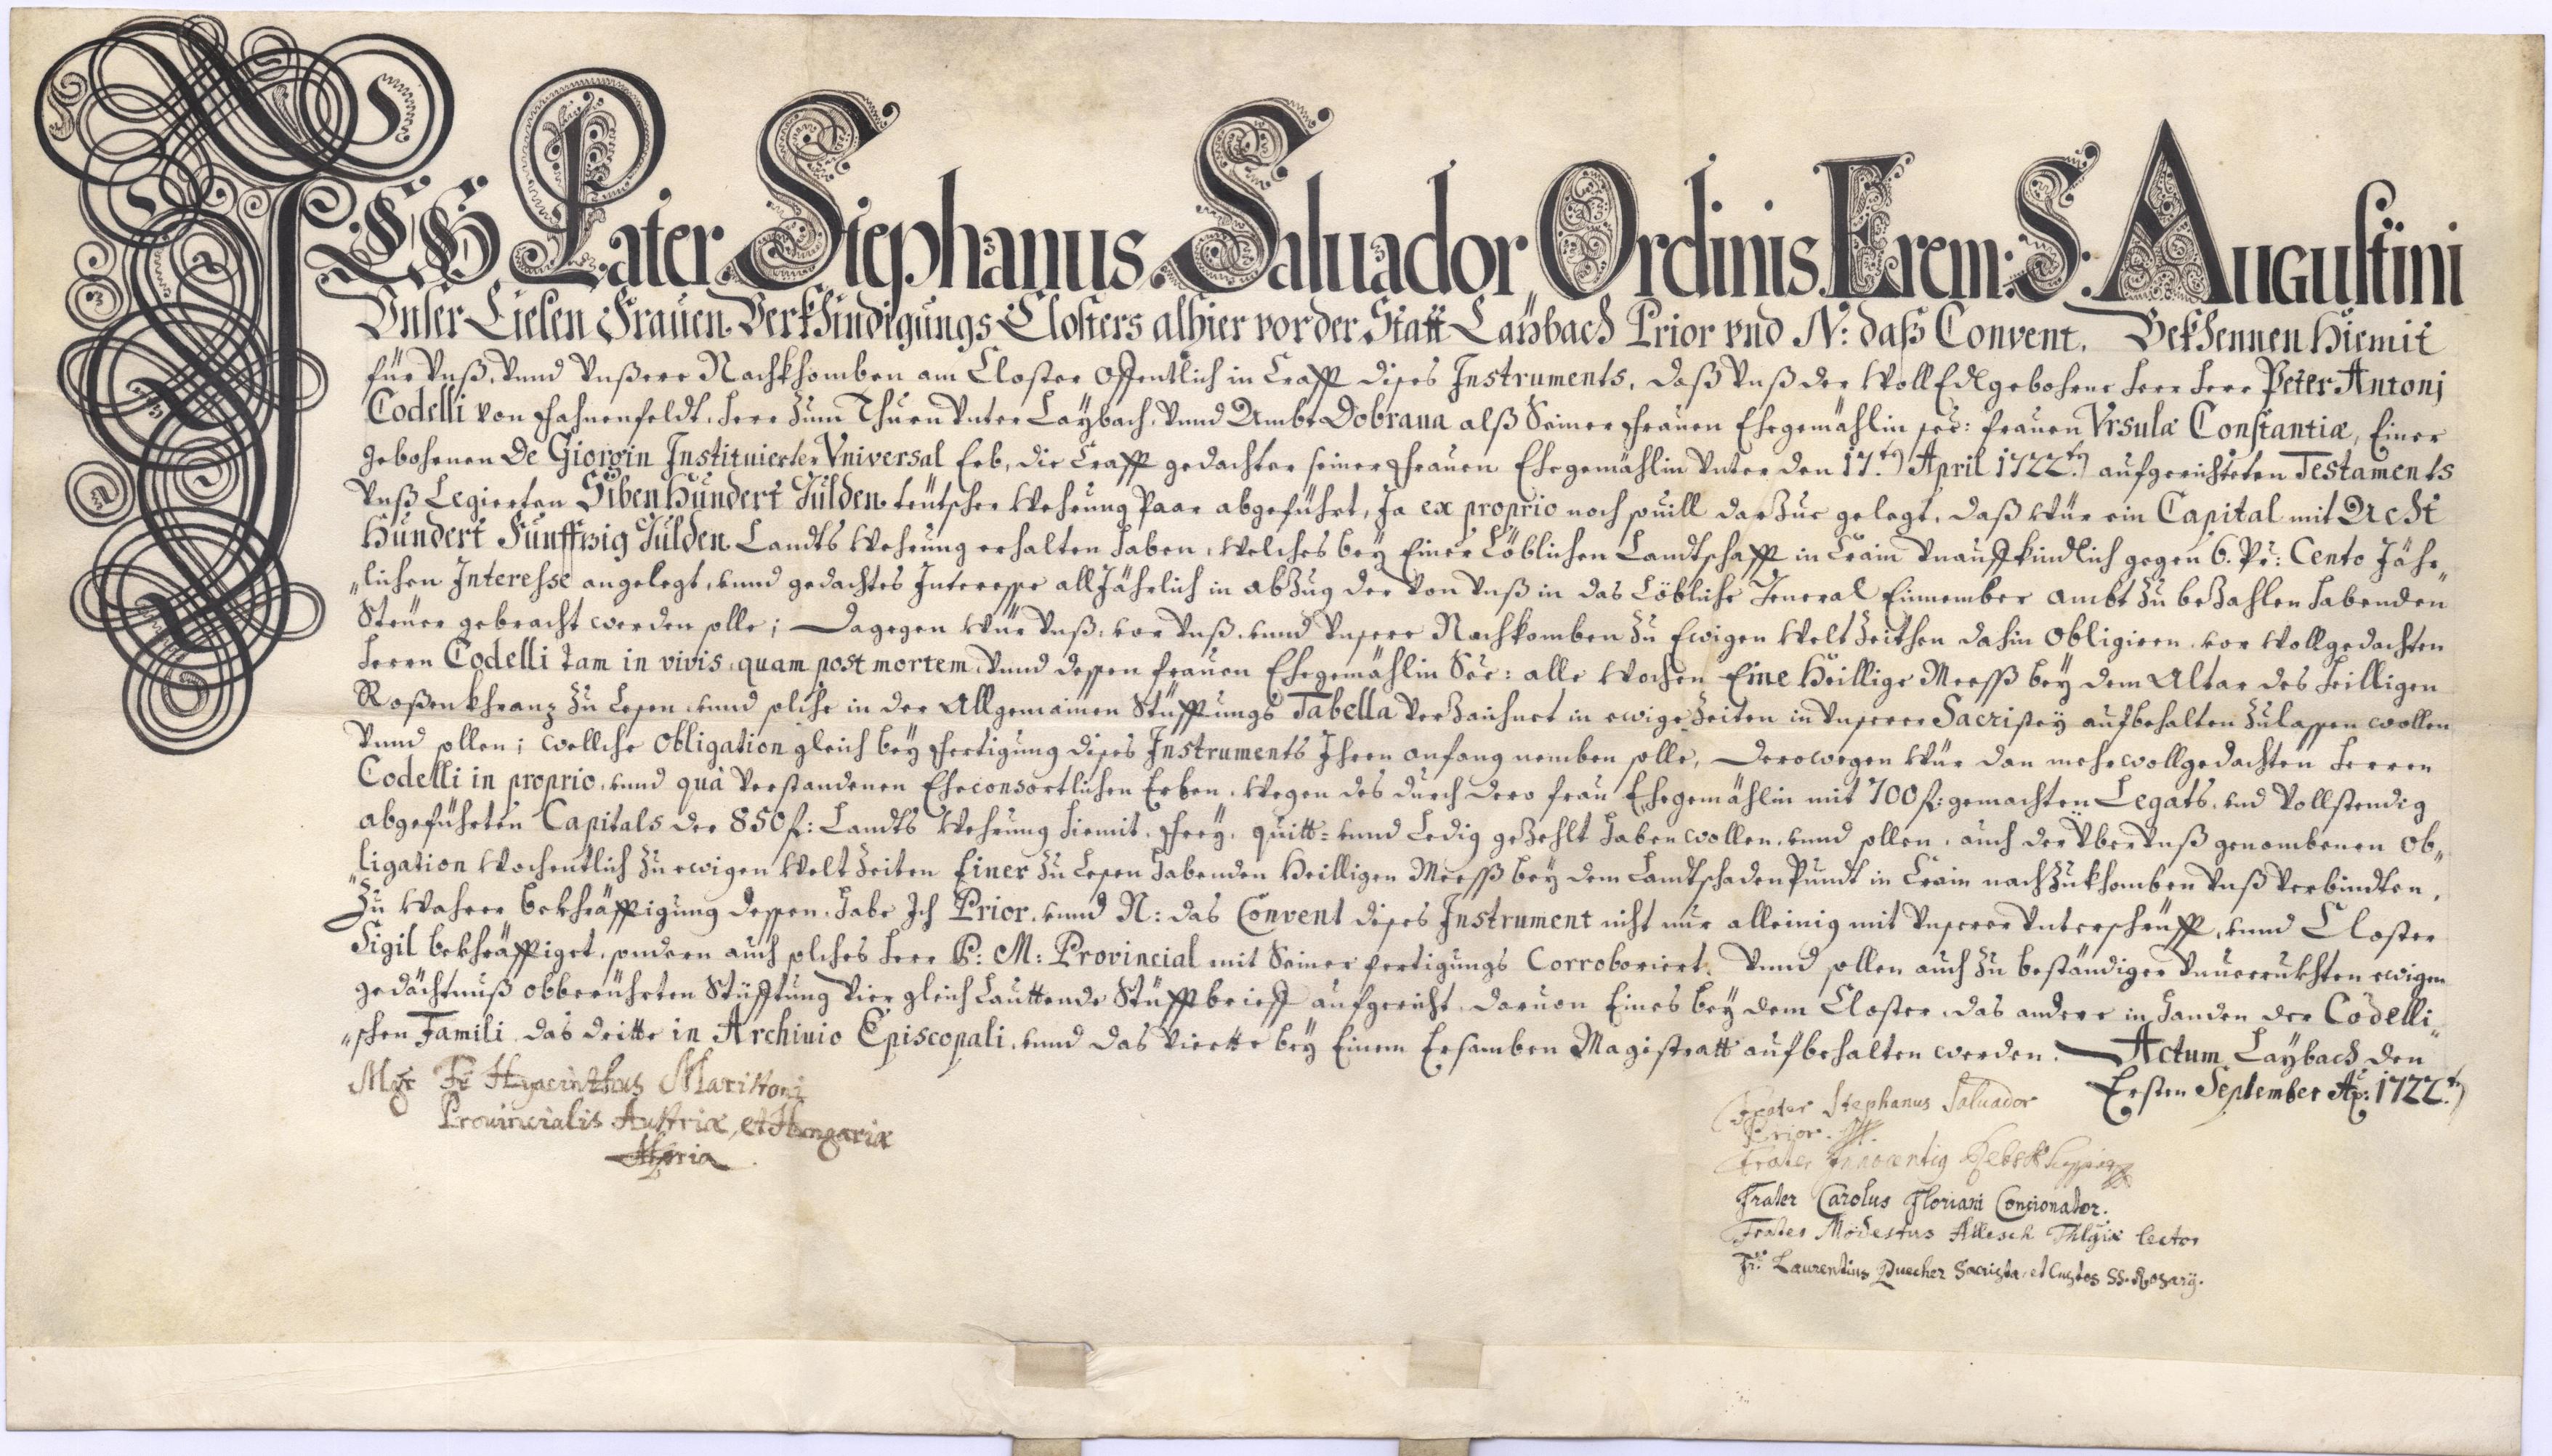 ICH Pater Stephanus Saluador Ordinis Erem: S: Augustini
Vnser Lieben Frauen Verkhündigungs Closters alhier vor der Statt Laÿbach Prior vnd N: daß Convent. Bekhennen Hiemit
für Vnß, Vnnd Vnßere Nachkhomben am Closter offentlich in Crafft dises Instruments, daß Vnß der WollEdlgebohrne Herr Herr Peter Antonj
Codelli von Fahnenfeldt, Herr zum Thurn Vnter Laybach, Vnnd Ambt Dobraua alß Seiner Frauen Ehegemählin see: frauen Vrsulæ Constantiæ, Einer
gebohrnen De Giorgin Instituierter Vniversal Erb, die Crafft gedachter seiner Frauen Ehegemählin Vnter den 17.ten April 1722.ten aufgerichteten Testaments
Vnß Legierten Siben Hundert Gulden teütscher Wehrung Paar abgeführt, Ja ex proprio noch souill darzue gelegt, daß Wür ein Capital mit Acht
Hundert Funffzig Gulden Landts Wehrung erhalten haben, Welches beÿ Einer Löblichen Landtschafft in Crain Vnaufkindlich gegen 6. Pr: Cento Jähr„
„lichen Interesse angelegt, vnnd gedachtes Interesse all Jährlich in abzug der Von Vnß in das Löbliche General Einnember ambt zu bezahlen habenden
Steüer gebracht werden solle; Dagegen Wür Vnß, vor Vnß, vnnd Vnsere Nachkomben zu Ewigen Welt Zeithen dahin obligiren, vor Wollgedachten
Herrn Codelli tam in vivis, quam post mortem, Vnnd dessen frauen Ehegemählin See: alle Wochen Eine Heillige Meess beÿ dem Altar des Heilligen
Roßenkhranz zu Lesen, vnnd solche in der Allgemainen Stüfftungs Tabella Verzaichnet in ewige Zeiten in Vnserer Sacristeÿ aufbehalten zulassen wollen
Vnnd sollen; wellche obligation gleich beÿ Fertigung dises Instruments Ihren anfang nemben solle, Derowegen Wür dan mehrwollgedachten Herren
Codelli in proprio, vnnd quà Verstandenen Eheconsortlichen Erben, Wegen des durch dero frau Ehegemählin mit 700 f: gemachten Legats, vnd Vollstendig
abgeführten Capitals der 850 f: Landts Wehrung hiemit, Freÿ, quitt= vnnd Ledig gezehlt haben wollen, vnnd sollen, auch der Vber Vnß genombenen ob„
„ligation Wochentlich zu ewigen Welt Zeiten Einer zu Lesen habenden Heilligen Meess beÿ dem Landtschadenpundt in Crain nachzukhomben Vnß Verbindten,
Zu Wahrer bekhräfftigung dessen, habe Ich Prior, vnnd N: das Convent dises Instrument nicht nur alleinig mit Vnserer Vnterschrüfft, vnnd Closter
Sigil bekhräfftiget, sondern auch solches Herr P: M: Provincial mit Seiner fertigungs Corroboriert. Vnnd sollen auch zu beständiger Vnuerrukhten ewigen
gedächtnuß obberührten Stüfftung Vier gleich Lauttende Stüfftbrieff aufgericht, daruon Eines beÿ dem Closter, das andere in Handen der Codelli„
„schen Famili, das dritte in Archiuio Episcopali, vnnd das Viertte beÿ Einem Ersamben Magistratt aufbehalten werden. Actum Laÿbach den
Ersten September Aō: 1722.ten
Mgr Fr Hyacinthus Marittoni
Prouincialis Austriæ, et Hungariæ
Frater Stephanus Saluador
Prior
Frater Innocentig
Frater Carolus Floriani Concionator.
Frater Modestus Allesch Thlgiæ lector
Fr: Laurentius Quecher Sacrista, et Custos SS. Rosarÿ.